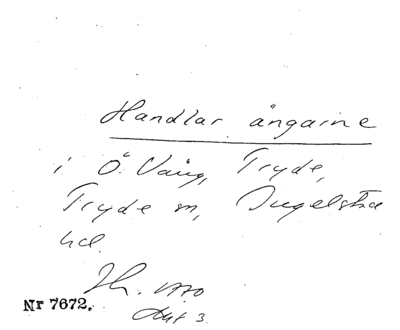 Handlar ängarne
i Ö. Vång, Tryde,
Tryde sn, Ingelstad
hd.
Nr 7672.
Akt 3.